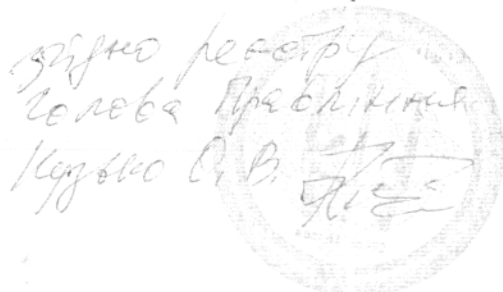 згідно реєстру
Голова Правління
Кузько О. В.